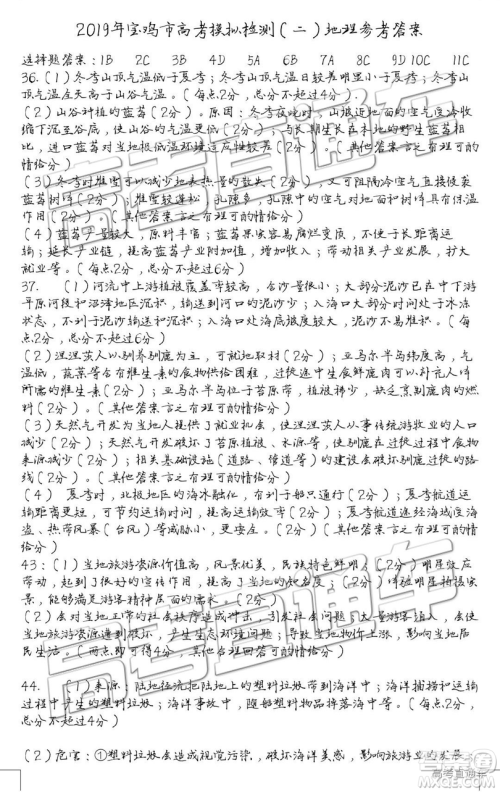 2019年宝鸡市高考模拟检测(二)地理参考答案
选择题答案: 1B 2C 3B 4D 5B 6B 7A 8C 9D 10C 11C
36.(1)冬季山顶气温低于夏季;冬季山顶气温日较差明显小于夏季;冬季山
顶气温全天高于山谷气温。(每点2分,总分不超过4分)
(2)山谷种植的蓝莓(2分)。原因:冬季夜晚时,山坡近地面的空气受冷收
缩下沉至谷底,使山谷的气温更低(2分);与长期生长在本地的野生蓝莓相
比,进口蓝莓对当地极低温环境适应性较差(2分)。(其他答案言之有理可酌
情给分)
(3)冬季时堆雪可以减少地表热量的散失(2分),又可阻隔冷空气直接侵袭
蓝莓树(2分);堆雪较蓬松,孔隙多,孔隙中的空气对地面和树有具有保温
作用(2分)(其他答案言之有理可酌情给分)
(4)蓝莓产量较大,原料丰富;蓝莓果实容易腐烂变质,不便于长距离运
输;延长产业链,提高蓝莓产业附加值,增加收入;带动相关产业发展,扩大
就业等。(每点2分,总分不超过6分)
37. (1)河流中上游植被覆盖率较高,含沙量很小;大部分泥沙已在中下游
平原河段和沼泽地区沉积,输送到河口的泥沙少;入海口大部分时间处于冰冻
状态,不利于泥沙输送和沉积;入海口处海底坡度较大,泥沙不易堆积。(每
点2分,总分不超过6分)
(2)涅涅茨人以驯养驯鹿为主,可就地取材(2分);亚马尔半岛纬度高,气
温低,蔬菜等含有维生素的食物供给困难,迁徙途中生食鲜鹿肉可以补充人体
所需的维生素(2分);亚马尔半岛位于苔原带,植被稀少,缺乏烹制鹿肉的燃
料(2分)。(其他答案言之有理可酌情给分)
(3)天然气开发为当地人提供了就业机会,使涅涅茨人从事传统游牧业的人口
减少(2分);天然气开发破坏了苔原植被、水源等,使驯鹿在迁徙过程中食物
来源减少(2分);相关基础设施(道路、管道等)的建设会破坏驯鹿迁徙的路
线(2分)。(其他答案言之有理可酌情给分)
(4) 夏季时,北极地区的海冰融化,有利于船只通行(2分);夏季航道运
输距离更短,可节约运输时间,提高运输效率(2分);夏季航道途经海域受海
盗、热带风暴(台风)等威胁小,更安全。(2分)(其他答案言之有理可酌情
给分)
43:(1)当地旅游资源价值高,风景优美,民族特色鲜明(2分)明星效应
带动,起到了很好的宣传作用,提高了当地的知名度;(2分)体验明星拍摄实
景,能够满足游客精神层面的需求。(2分)
(2)会对当地正常的社会秩序造成冲击,引发社会问题;大量游客涌入,会使
当地旅游资源遭到破坏,产生生态环境问题;导致当地物价上涨,影响当地居
民生活。(两点即可得4分,其他合理回答可酌情给分)
44. (1)来源:陆地径流把陆地上的塑料垃圾带到海洋中;海洋捕捞和运输
过程中产生的塑料垃圾;海洋事故中,随船塑料物品掉落海中等。(每点2分,
总分不超过4分)
(2)危害:①塑料垃圾会造成视觉污染,破坏海洋美感,影响旅游业的发展
高考直通车